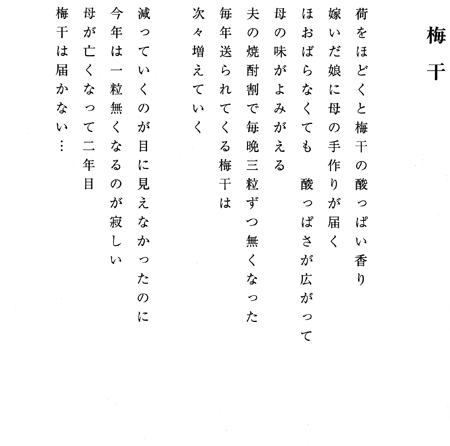 梅干
荷をほどくと梅干の酸っぱい香り
嫁いだ娘に母の手作りが届く
ほおばらなくても　酸っぱさが広がって
母の味がよみがえる
夫の焼酎割で毎晩三粒ずつ無くなった
毎年送られてくる梅干は
次々増えていく
減っていくのが目に見えなかったのに
今年は一粒無くなるのが寂しい
母が亡くなって二年目
梅干は届かない…